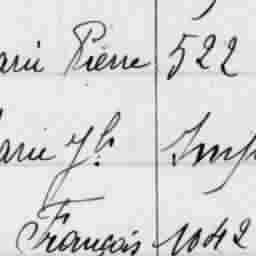 arie Pierre 522
arie Jh.
François 1042